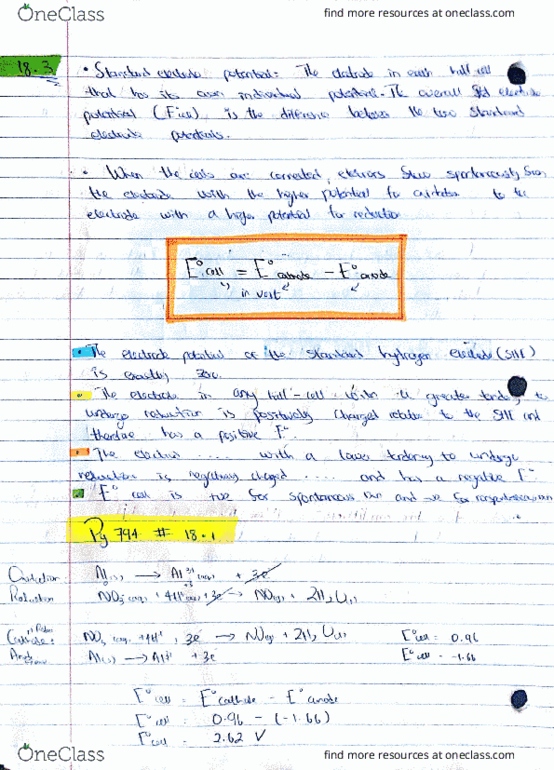 OneClass
find more resources at oneclass.com
18.3
• Standard electrode potential: The electrode in each half cell
that has its own individual potential. The overall std electrode
potential (E°cell) is the difference between the two standard
electrode potentials.
• When the cells are connected, electrons flow spontaneously from
the electrode with the higher potential for oxidation to the
electrode with a higher potential for reduction
E°cell = E°cathode - E°anode
in volt
• The electrode potential of the standard hydrogen electrode (SHE)
is exactly zero.
• The electrode in any half-cell with a greater tendency to
undergo reduction is positively charged relative to the SHE and
therefore has a positive E°.
• The electrode .... with a lower tendency to undergo
reduction is negatively charged .... and has a negative E°
E° cell is +ve for spontaneous rxn and -ve for
Pg 794 # 18.1
Oxidation: Al(s) → Al³⁺(aq) + 3e⁻
Reduction: NO₃⁻(aq) + 4H⁺(aq) + 3e⁻ → NO(g) + 2H₂O(l)
Cathode: NO₃⁻(aq) + 4H⁺ + 3e⁻ → NO(g) + 2H₂O(l) E°cell = 0.96
Anode Al(s) → Al³⁺ + 3e⁻ E°cell = -1.66
E°cell = E°cathode - E°anode
E°cell = 0.96 - (-1.66)
E°cell = 2.62 V
OneClass
find more resources at oneclass.com